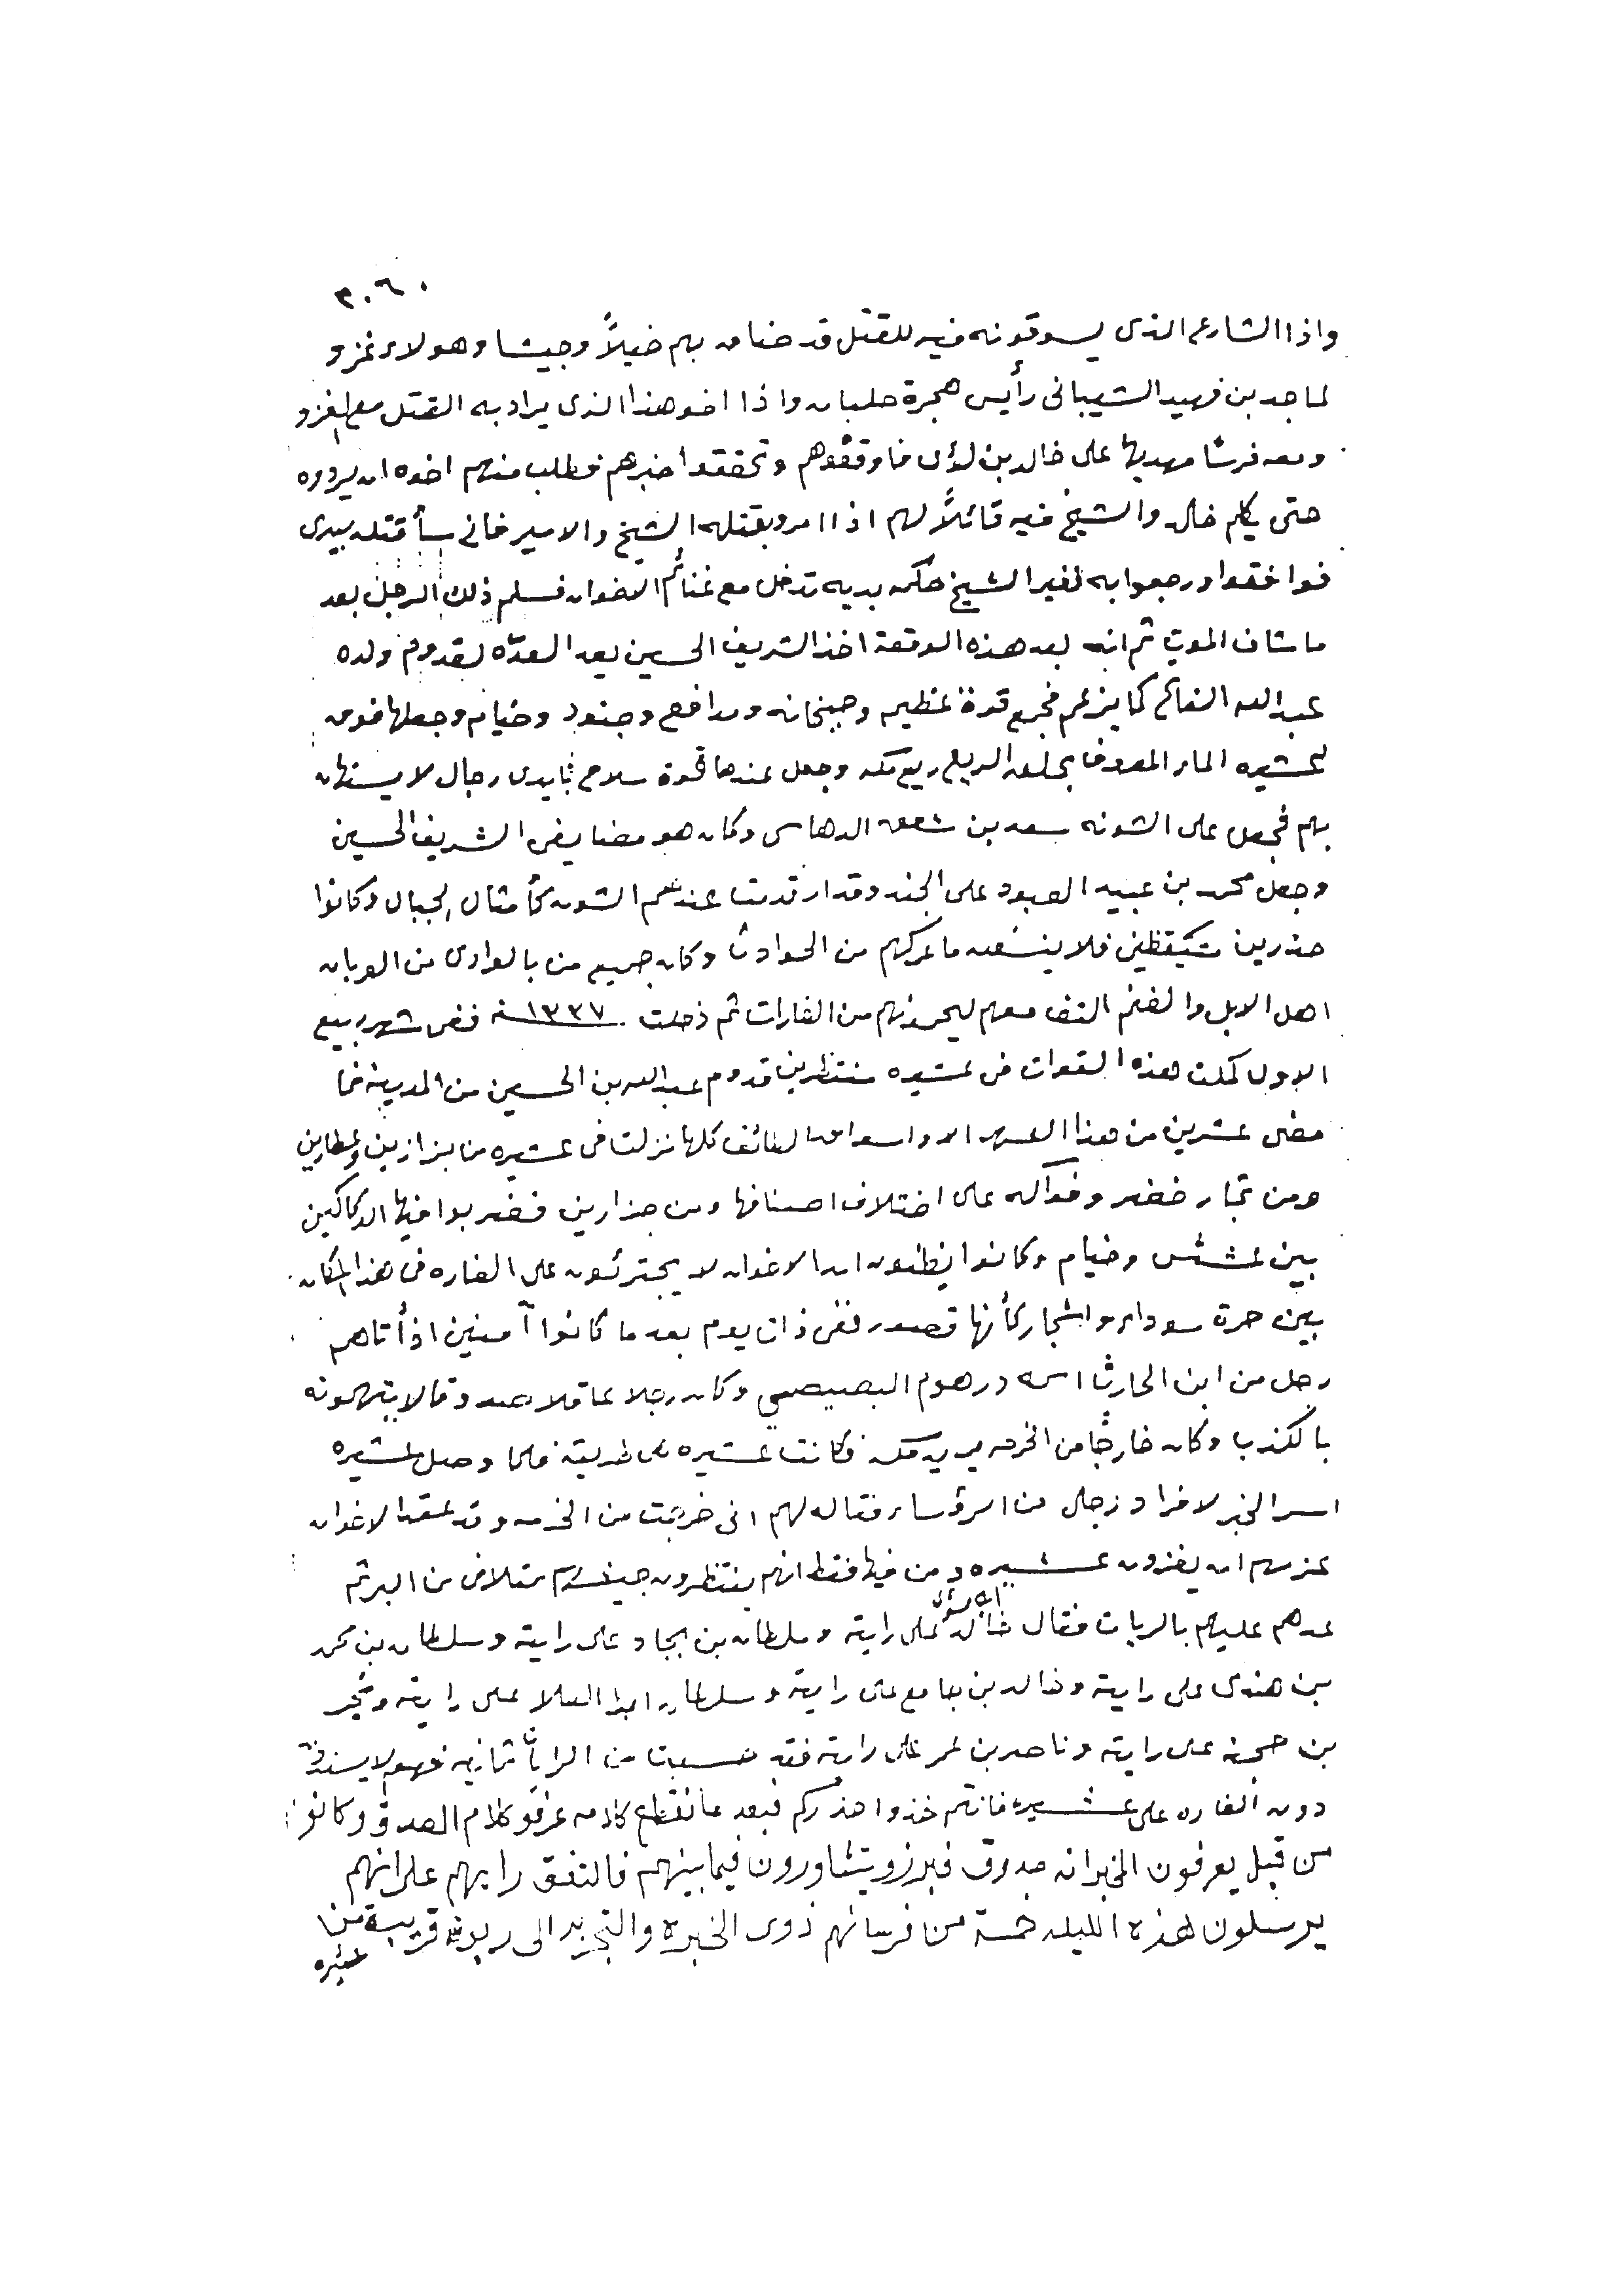 ٣٠٦٠
واذا الشارع الذى يسوقونه فيه للقتل قد ضاق بهم خيلاً وجيشا وهولاء غزو
لماجد بن فهيد الشيبانى رأيس هجرة حلبان واذا اخو هذا الذى يراد به القتل مع الغزو
ومعه فرسًا مهديها على خالد بن لؤى فاوقفوهم وتحققو اخبرهم فطلب منهم اخوه ان يردوه
حتى يكلم خالد والشيخ فيه قائلاً لهم اذا امرو بقتله الشيخ والامير فانى سأقتله بيدى
فوافقوا ورجعوا به لغير الشيخ حكمه بديه تدخل مع غنائم الاخوان فسلم ذلك الرجل بعد
ما شاف الموت ثم انه بعد هذه الوقعة اخذ الشريف الحسين يعد العدّه لقدوم ولده
عبدالله الفاتح كما يزعم فجمع قوة عظيمه وجبخانه ومدافع وجنود وخيام وجعلها فوق
عشيره الماء المعروف بجلعه الربع ريع مكه وجعل عندها قوة سلاح بايدى رجال لا يستهان
بهم فجعل على الشونه سعد بن الدهاسى وكان هو مضايفى الشريف الحسين
وجعل محمد بن عبيد العبود على الجند وقد ارتدمت عندهم الشون كأمثال الجبال وكانوا
حذرين متيقظين فلا ينسون ما عركهم من الحوادث وكان جميع من بالوادى من العربان
اهل الابل والغنم التف معهم ليحموهم من الغارات ثم دخلت سنة ١٣٣٧ ففى شهر ربيع
الاول كملت هذه القوات فى عشيره منتظرين قدوم عبدالله بن الحسين من المدينه فما
مضى عشرين من هذا الشهر الا واسواق الطائف كلها نزلت فى عشيره من بزازين وعطارين
ومن تجار خضر وفواكه على اختلاف اصنافها ومن جزارين فضربوا فيها الدكاكين
بين عشش وخيام وكانوا يظنون ان الاخوان لا يجترئون على الغاره فى هذا المكان
بين حرة سوداء واشجار كأنها قصور ففى ذات يوم بعد ما كانوا آمنين اذ أتاهم
رجل من ابن الحارث اسمه درهوم البصيصى وكان رجلا عاقلا صدوقا لا يتهمونه
بالكذب وكان خارجًا من الخرمه يريد مكه فكانت عشيره على طريقه فلما وصل عشيره
اسر الخبر لافراد رجال من الرؤساء فقال لهم انى خرجت من الخرمه وقد عقد الاخوان
عزمهم ان يغزون عشيره ومن فيها فقط انهم ينتظرون جيشهم متلافى من البر ثم
عدهم عليهم بالريات فقال خالد ابن لؤى على راية وسلطان بن بجاد على راية وسلطان بن محمد
بن هندى على راية وخالد بن جامع على راية وسلطان ابا العلا على راية
بن على راية وناصر بن عمر على رايه فقد حسبت من الرايات ثمانيه فهم لا يستدفى
دون الغاره على عشيره فانتم خذوا حذركم فبعد ما انقطع كلامه عرفو كلام الصدق وكانوا
من قبل يعرفون الخبر انه صدوق فبرزو يتشاورون فيما بينهم فالتفق رايهم على انهم
يرسلون هذه الليله خمسة من فرسانهم ذوى الخبره والتجربه الى قريبة من
عشيره